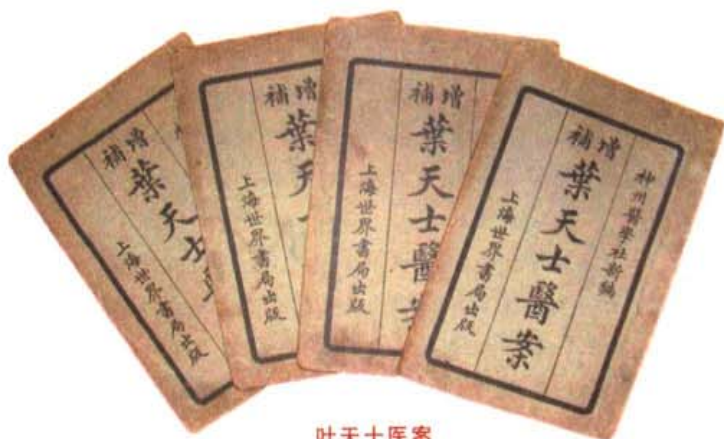 增補
葉天士醫
上海世界書局出版
增補
葉天士
上海世界書局出版
增補
葉天士醫案
上海世界書局出版
神州醫學社新編
增補
葉天士醫案
上海世界書局出版
叶天士医案